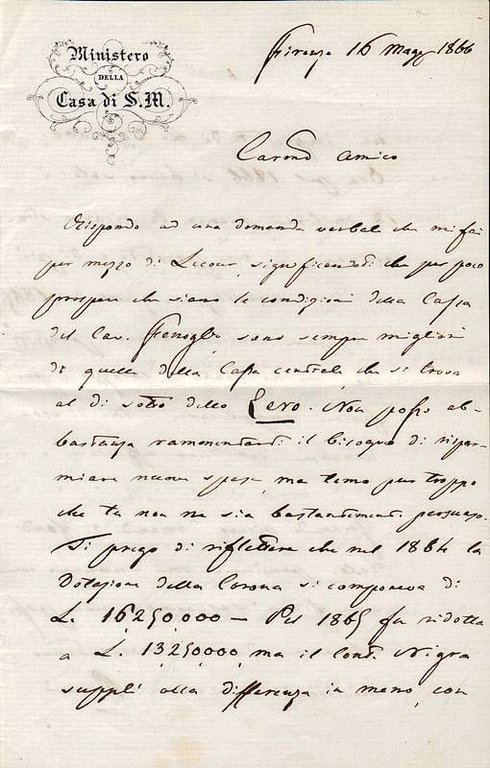 Ministero
DELLA
Casa di S. M.
Firenze 16 Magg 1866
Carmo Amico
Rispondo ad una domanda verbale che mi fai
per mezzo di significandoti che per poco
prospere che siano le condizioni della Cassa
del Cav. Fenoglio sono sempre migliori
di quelle della Cassa centrale che si trova
al di sotto dello Zero. Non posso ab-
bastanza rammentarti il bisogno di rispar-
miare nuove spese, ma temo pur troppo
che tu non ne sia bastantemente persuaso.
Ti prego di riflettere che nel 1864 la
Dotazione della Corona si componeva di
L. 16,250,000 — Pel 1865 fu ridotta
a L. 13,250,000, ma il Conte Nigra
supplì alla differenza in meno, con